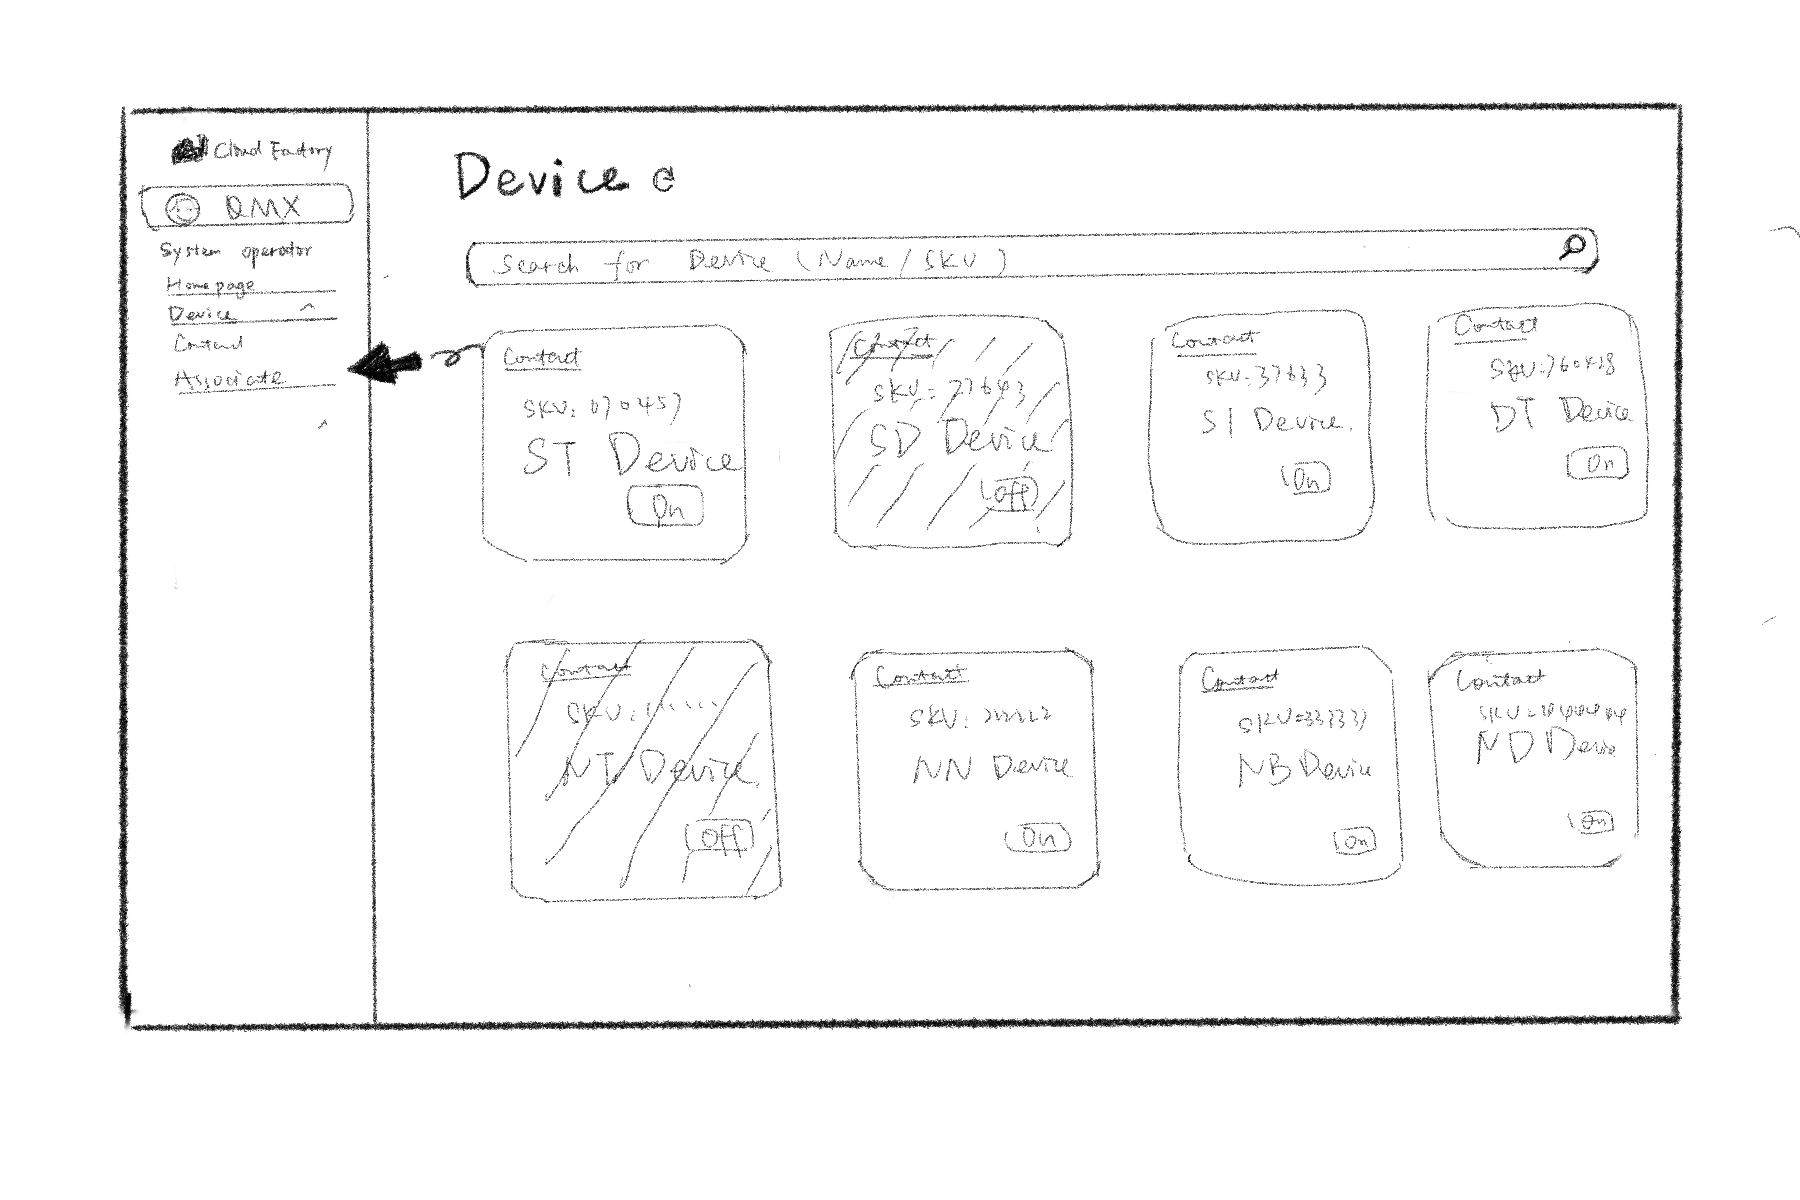 Cloud Factory
QMX
System operator
Home page
Device
Contact
Associate
Device
Search for Device (Name / SKU)
Contact
SKU: 070457
ST Device
On
Contact
SKU: 27643
SD Device
Off
Contact
SKU: 37633
SI Device.
On
Contact
DT Device
On
Contact
SKU:
NT Device
Off
Contact
SKU: 222222
NN Device
On
Contact
SKU=333333
NB Device
On
Contact
ND Device
On